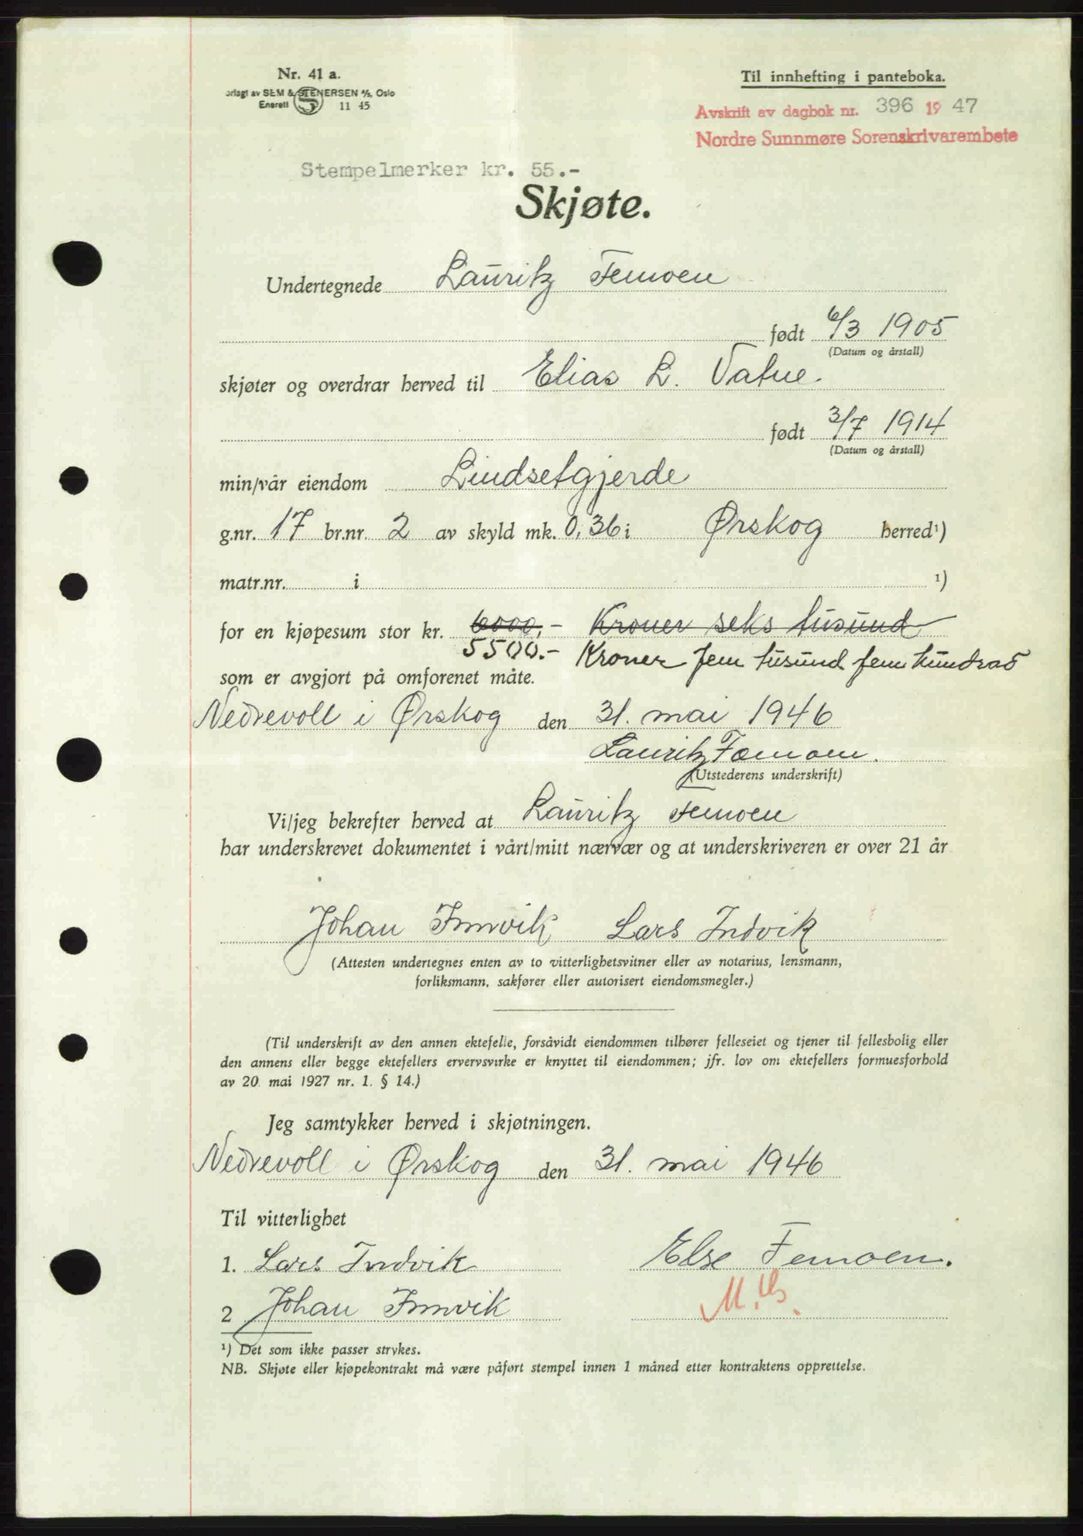 Nr. 41 a.
orlagt av SEM & STENERSEN A/S, Oslo
Enerett S 11 45
Til innhefting i panteboka.
Avskrift av dagbok nr. 396 19 47
Nordre Sunnmøre Sorenskrivarembete
Stempelmerker kr. 55.-
Skjøte.
Undertegnede Lauritz Femoen
født 6/3 1905
(Datum og årstall)
skjøter og overdrar herved til Elias L. Vatne.
født 3/7 1914
(Datum og årstall)
min/vår eiendom Lindsetgjerde
g.nr. 17 br.nr. 2 av skyld mk. 0,36 i Ørskog herred¹)
matr.nr. i ¹)
for en kjøpesum stor kr. 6000,- Kroner seks tusund
5500.- Kroner fem tusund fem hundrad
som er avgjort på omforenet måte.
Nedrevoll i Ørskog den 31. mai 1946
Lauritz Femoen.
(Utstederens underskrift)
Vi/jeg bekrefter herved at Lauritz Femoen
har underskrevet dokumentet i vårt/mitt nærvær og at underskriveren er over 21 år
Johan Imvik Lars Indvik
(Attesten undertegnes enten av to vitterlighetsvitner eller av notarius, lensmann,
forliksmann, sakfører eller autorisert eiendomsmegler.)
(Til underskrift av den annen ektefelle, forsåvidt eiendommen tilhører felleseiet og tjener til fellesbolig eller
den annens eller begge ektefellers ervervsvirke er knyttet til eiendommen; jfr. lov om ektefellers formuesforhold
av 20. mai 1927 nr. 1. § 14.)
Jeg samtykker herved i skjøtningen.
Nedrevoll i Ørskog den 31. mai 1946
Til vitterlighet
1. Lars Indvik Else Femoen.
2 Johan Imvik
¹) Det som ikke passer strykes.
NB. Skjøte eller kjøpekontrakt må være påført stempel innen 1 måned etter kontraktens opprettelse.